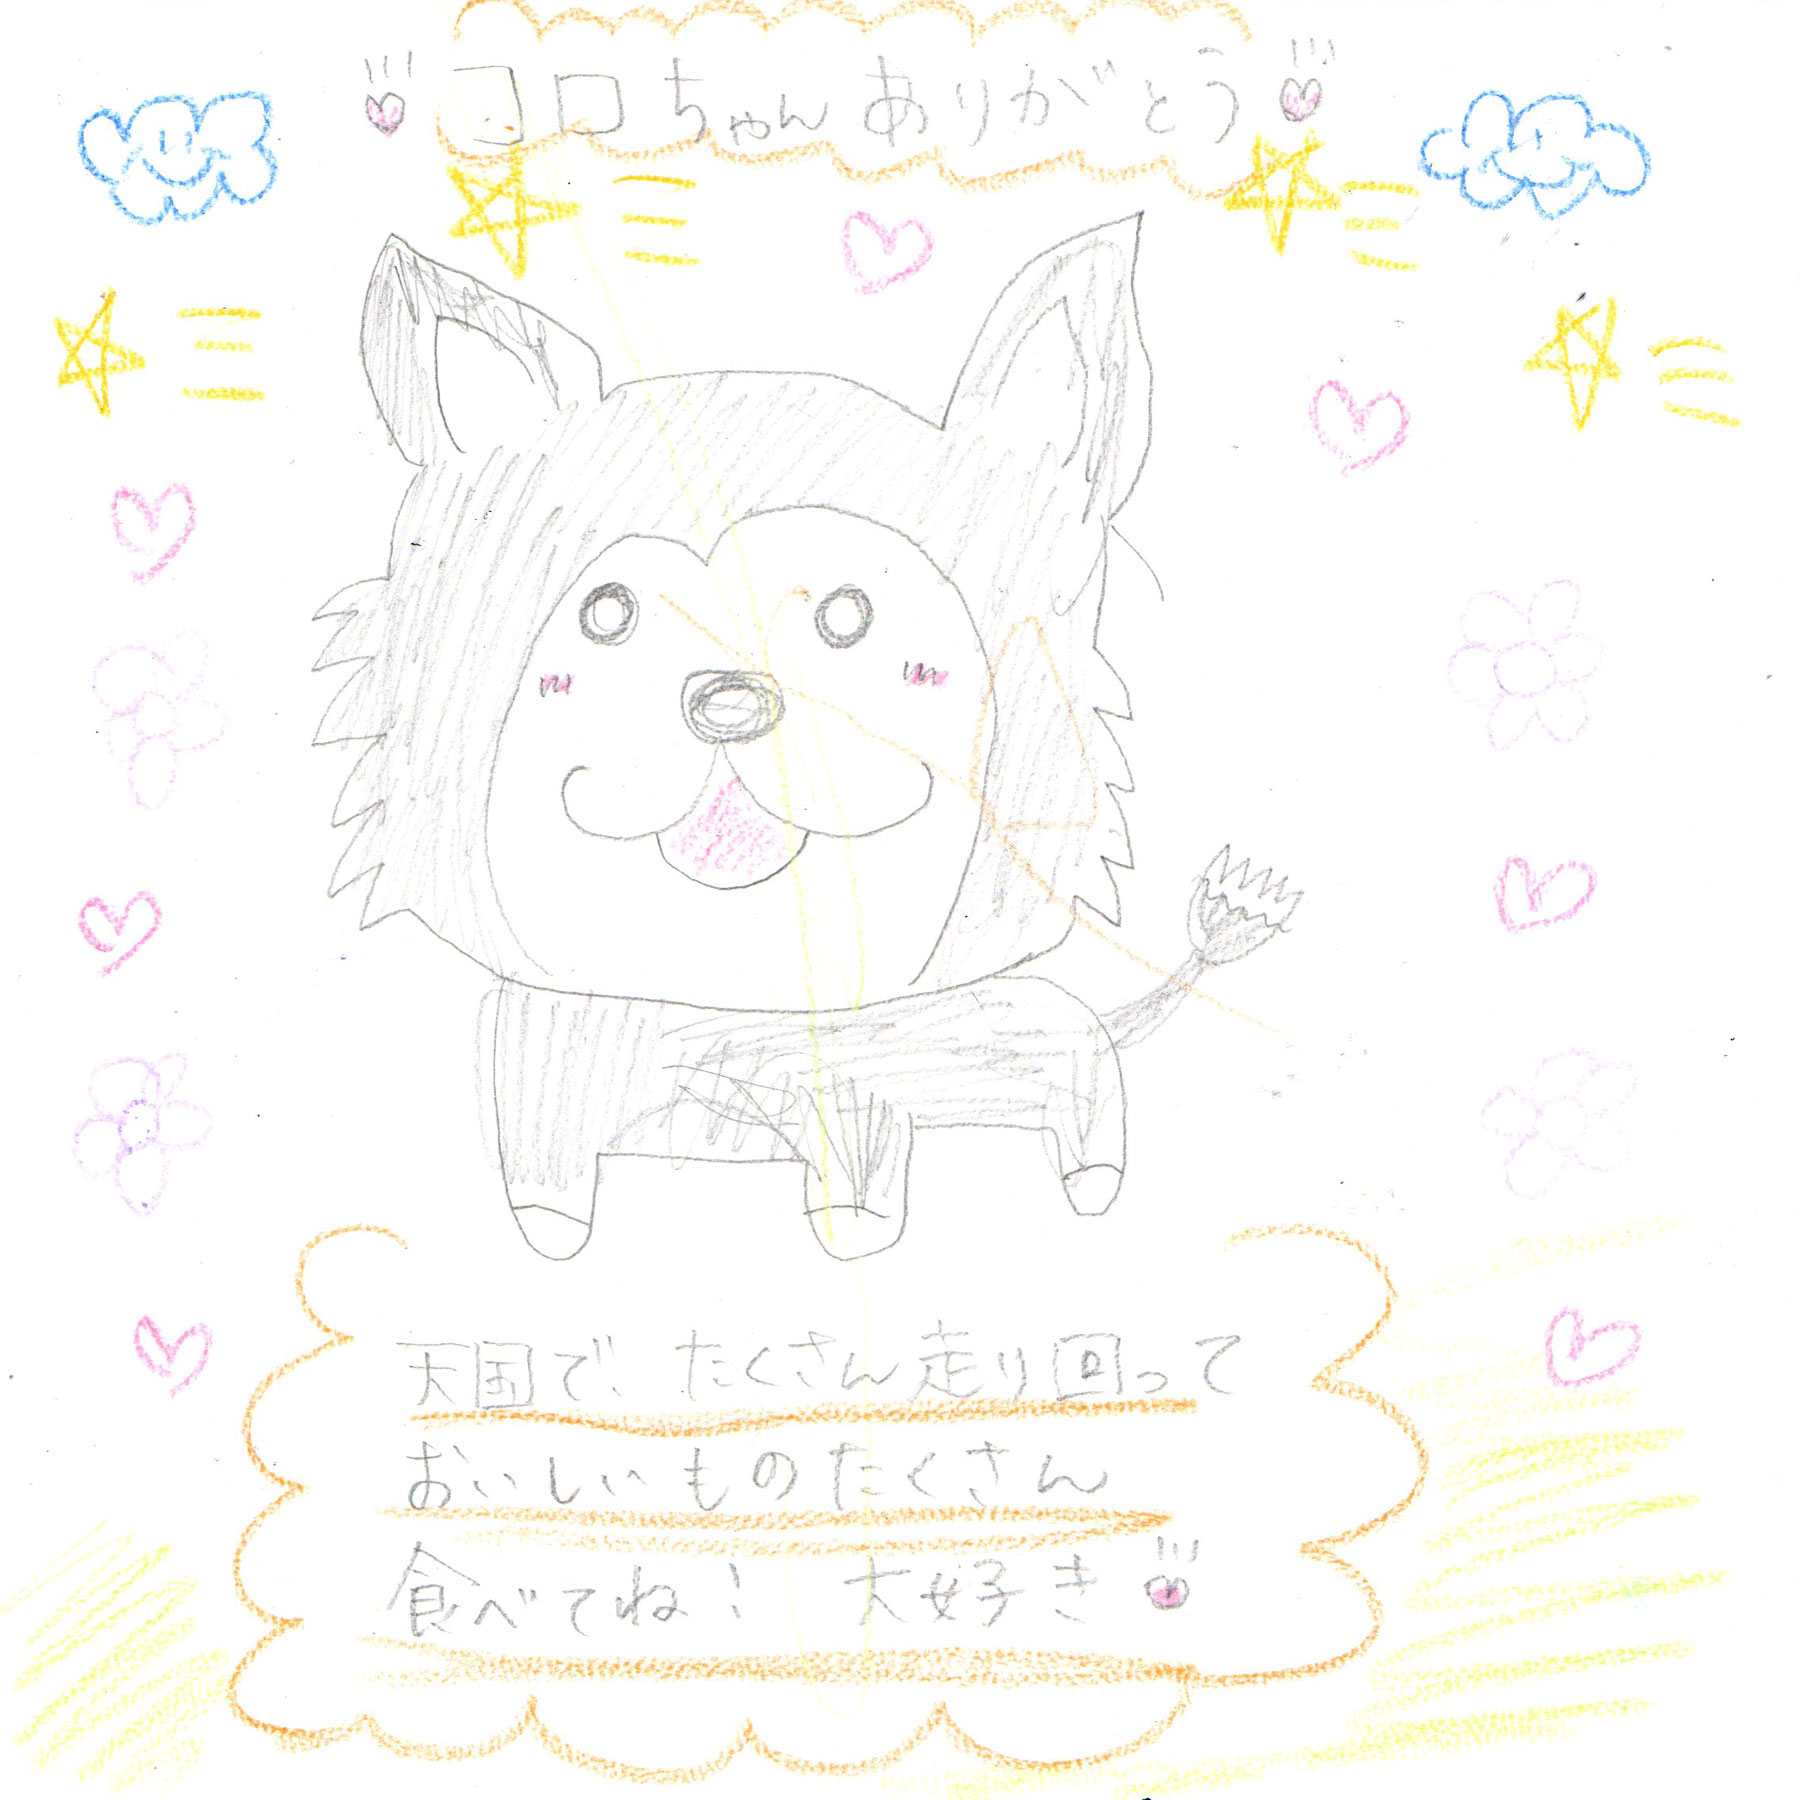 コロちゃんありがとう
天国で、たくさん走り回って
おいしいものたくさん
食べてね！ 大好き